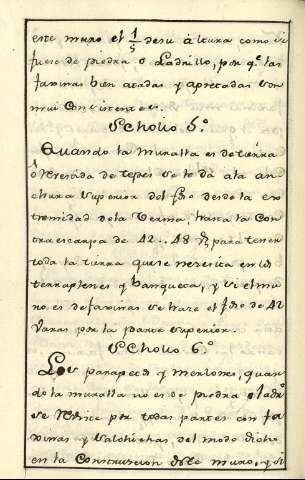 este muro el 1/5 de su altura como si
fuese de piedra o Ladrillo, por q.e las
faxinas bien atadas y apretadas son
mui Consistentes.
Scholio 5.º
Quando la muralla es de tierra
o Revestida de tepes se le dá a la an
chura Superior del fóso desde la ex
tremidad de la Berma, hasta la Con
traescarpa de 42..48 para tener
toda la tierra que se necesita en los
terraplenes y banqueta, y si el mu
ro es de faxinas se haze el foso de 42
Varas por la parte superior.
Scholio 6.º
Los parapetos y merlones, quan
do la muralla no es de piedra o ladr.º
se Reviste por todas partes con fa
xinas y Salchichas del modo dicho
en la Construccion de este muro, y si